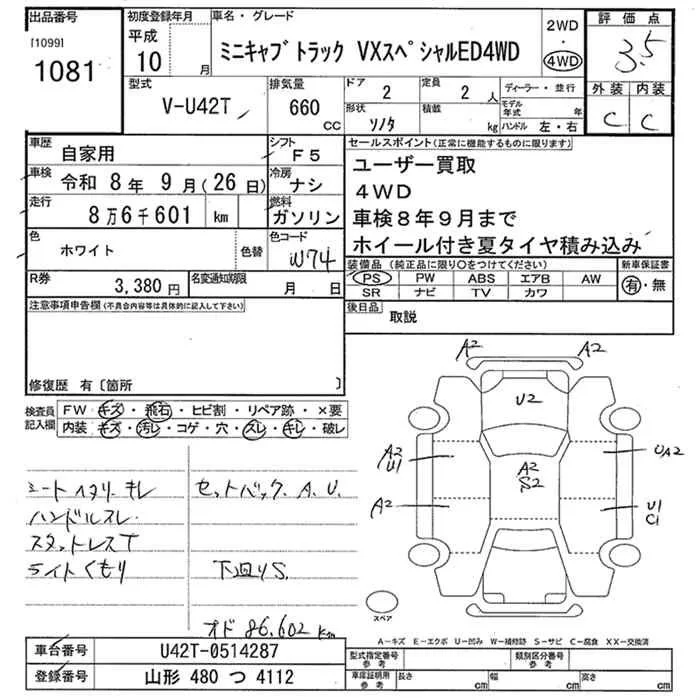 出品番号
[1099]
1081
初度登録年月
平成
10 月
車名・グレード
ミニキャブトラック VXスペシャルED4WD
2WD
・
4WD
評価点
3.5
外装 内装
C C
型式
V-U42T
排気量
660
CC
ドア
2
定員
2 人
形状
ソノタ
積載
kg
ディーラー・並行
モデル年式 年
ハンドル 左・右
車歴
自家用
シフト
F5
車検
令和 8年 9月(26日)
冷房
ナシ
走行
8万6千601 km
燃料
ガソリン
色
ホワイト
色替
色コード
W74
R券
3,380円
名変通知期限
月 日
セールスポイント(正常に機能するものに限ります)
ユーザー買取
4WD
車検8年9月まで
ホイール付き夏タイヤ積み込み
装備品(純正品に限り○をつけてください)
PS PW ABS エアB AW
SR ナビ TV カワ
新車保証書
有・無
後日品
取説
注意事項申告欄(不具合内容等は具体的に記入して下さい)
修復歴 有〔箇所 〕
検査員
記入欄
FW キズ・飛石・ヒビ割・リペア跡・×要
内装 キズ・汚レ・コゲ・穴・スレ・キレ・破レ
シートヘタリ、キレ
ハンドルスレ
スタットレスT
ライトくもり
セットバック、A、U、
下回りS、
オド 86,602 Km
A2 A2
U2
A2
U1
A2
S2
UA2
A2
U1
C1
スペア
A-キズ E-エクボ U-凹み W-補修跡 S-サビ C-腐食 XX-交換済
車台番号
U42T-0514287
登録番号
山形 480 つ 4112
型式指定番号
参考
類別区分番号
参考
車庫証明用
参考
長さ cm
幅 cm
高さ cm